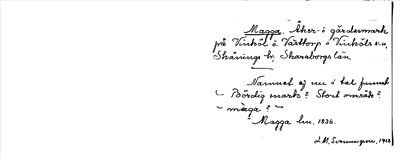 Magga. Åker- o gärdesmark
på Vinköl o. Västtorp i Vinköls s:n,
Skånings hr, Skaraborgs län.
Namnet ej nu i tal funnet
Bördig mark? Stort område?
Magga hm, 1836.
J.M. Svenungsson, 1913